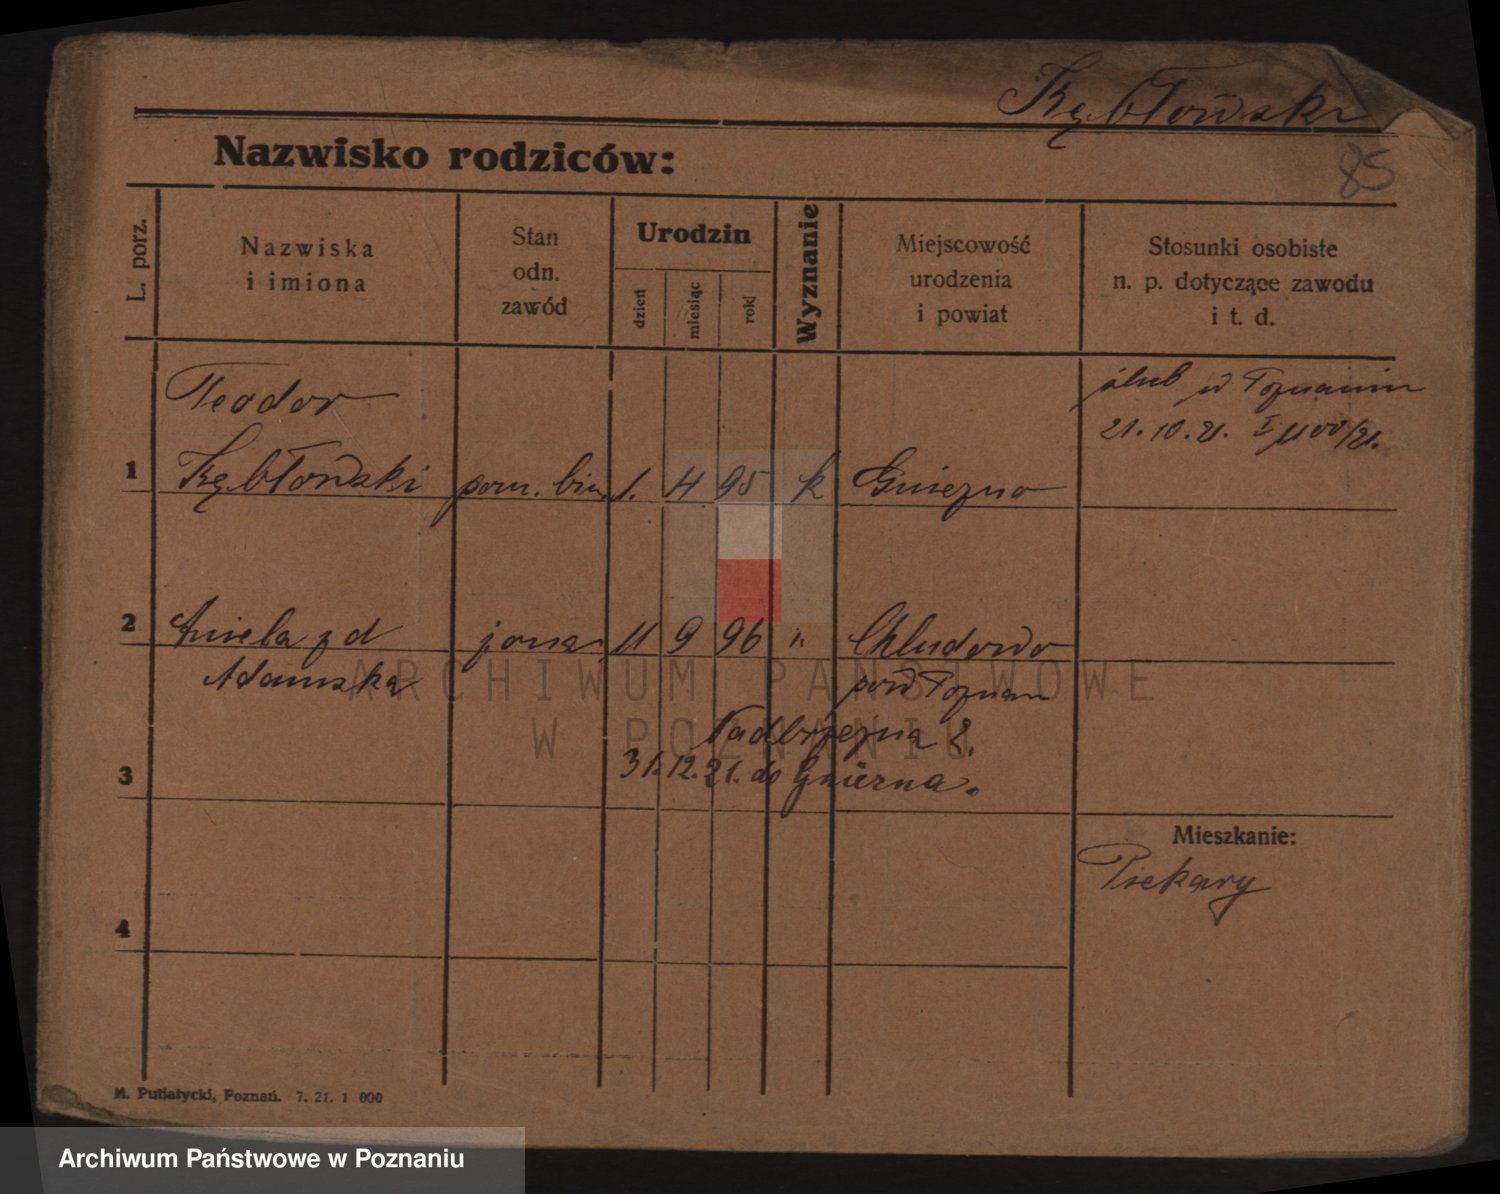 Kębłowski
85
Nazwisko rodziców:
L. porz.
Nazwiska
i imiona
Stan
odn.
zawód
Urodzin
dzień
miesiąc
rok
Wyznanie
Miejscowość
urodzenia
i powiat
Stosunki osobiste
n. p. dotyczące zawodu
i t. d.
Teodor
ślub w Poznaniu
21. 10. 21. I 1100/21.
1 Kębłowski pom. biu. 1. 4 95 k Gniezno
2 Aniela z d żona 11 9 96 " Chludowo
Adamska pow Poznań
Nadbrzeżna 2.
3 31. 12. 21. do Gniezna.
Mieszkanie:
Piekary
4
M. Putiatycki, Poznań. 7. 21. 1 000
ARCHIWUM PAŃSTWOWE
W POZNANIU
Archiwum Państwowe w Poznaniu